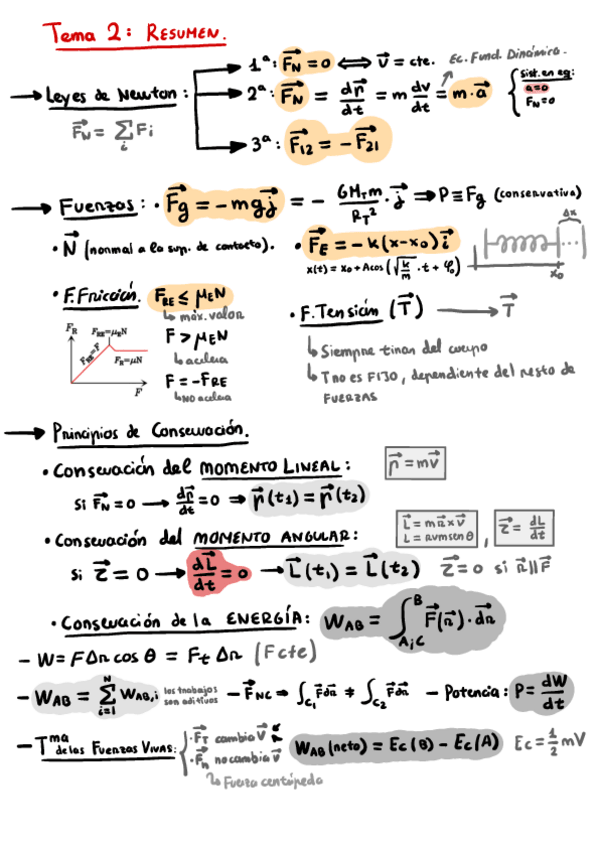 Tema 2: RESUMEN.
1ª: F⃗N = 0 ⟺ v⃗ = cte.
Ec. Fund. Dinámica.
→ Leyes de Newton:
2ª: F⃗N = dp⃗/dt = m dv/dt = m·a⃗
Sist. en eq:
a=0
FN=0
F⃗N = Σi Fi
3ª: F⃗12 = −F⃗21
→ Fuerzas: · F⃗g = −mgj⃗ = − GMTm/RT² · j⃗ ⇒ P ≡ Fg (conservativa)
· N⃗ (normal a la sup. de contacto).
· F⃗E = −k(x−x0)i⃗
Δx
x(t) = x0 + A cos(√(k/m)·t + φ0)
x0
· F. Fricción. FRE ≤ μEN
↳ máx. valor
· F. Tensión (T⃗) → T⃗
FR
FRE=μEN
FRE=F
FR=μN
F
F > μEN
↳ acelera
F = −FRE
↳ NO acelera
↳ Siempre tiran del cuerpo
↳ T no es FIJO, dependiente del resto de
FUERZAS
→ Principios de Conservación.
• Conservación del MOMENTO LINEAL:
p⃗ = mv⃗
Si F⃗N = 0 → dp⃗/dt = 0 ⇒ p⃗(t1) = p⃗(t2)
• Conservación del MOMENTO ANGULAR:
L⃗ = mr⃗×v⃗
L = rvm sen θ
,
τ⃗ = dL⃗/dt
Si τ⃗ = 0 → dL⃗/dt = 0 → L⃗(t1) = L⃗(t2)
τ⃗ = 0 si r⃗ || F⃗
• Conservación de la ENERGÍA: WAB = ∫A;C^B F⃗(r⃗)·dr⃗
− W = FΔr cos θ = Ft Δr (F cte)
− WAB = Σi=1^N WAB,i los trabajos son aditivos − F⃗NC → ∫C1 F⃗dr⃗ ≠ ∫C2 F⃗dr⃗ − Potencia: P = dW/dt
− Tma de las Fuerzas Vivas:
· F⃗T cambia v⃗
· F⃗n no cambia v⃗
↳ Fuerza centrípeda
WAB (neto) = Ec(B) − Ec(A)
Ec = 1/2 mV